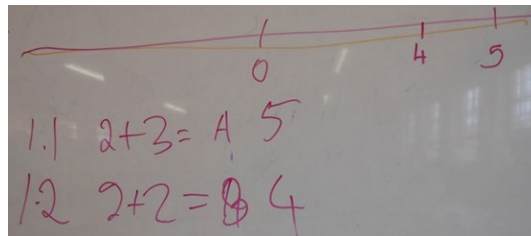 0 4 5
1.1 2+3= A 5
1.2 2+2= B 4